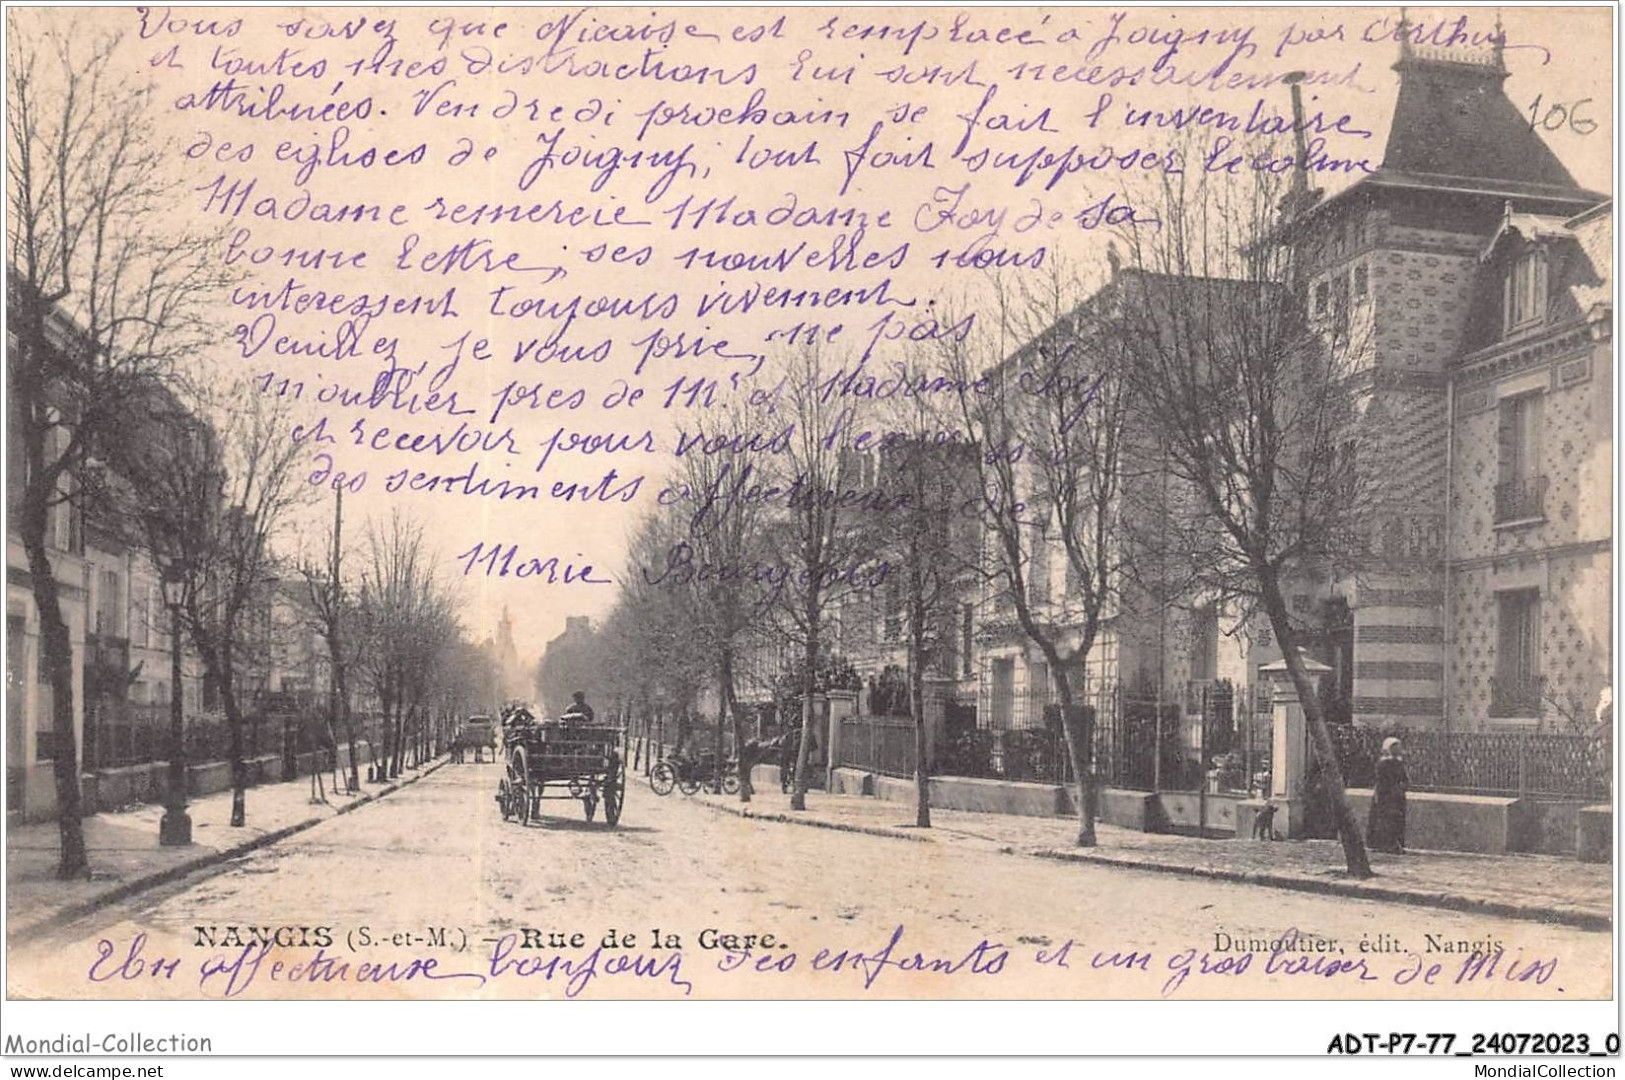 Vous savez que Nicaise est remplacé à Joigny par Arthur
et toutes mes distractions lui sont necessairement
attribuées. Vendredi prochain se fait l'inventaire
106
des eiglises de Joigny, tout fait supposer le calme
Madame remercie Madame Joy de sa
bonne lettre, ses nouvelles nous
interessent toujours vivement.
Veuillez, je vous prie, ne pas
m'oublier pres de Mr et Madame Joy
et recevoir pour vous l'express
des sentiments affectueux de
Marie Bourgeois
NANGIS (S.-et-M.) — Rue de la Gare.
Dumoutier, édit. Nangis
Un affectueuse bonjour des enfants et un gros baiser de Miss.
Mondial-Collection
ADT-P7-77_24072023_0
MondialCollection